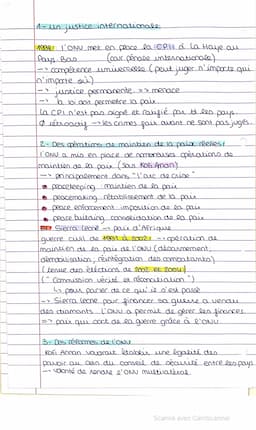 1- Un justice internationale:
1998: l'ONU met en place la CPI à La Haye au
Pays Bas (cour pénale internationale)
-> compétence universelle (peut juger n'importe qui
n'importe où)
-> justice permanente => menace
-> là où on permettre la paix
la CPI n'est pas signé et ratifié par tt les pays
Ø rétroactif -> les crimes fait avant ne sont pas jugés.
2- Des opérations de maintien de la paix réelles:
l'ONU a mis en place de nombreuses opérations de
maintien de la paix (sous Kofi Annan)
-> principalement dans "l'arc de crise"
peacekeeping: maintien de la paix
peacemaking: rétablissement de la paix
peace enforcement: imposition de la paix
peace building: consolidation de la paix
Sierra Leone -> pays d'Afrique
guerre civil de 1991 à 2002: -> opération de
maintien de la paix de l'ONU (désarmement,
démobilisation, réintégration des combattants)
(tenue des élections de 2002 et 2004)
("Commission vérité et réconciliation")
↳ pour parler de ce qu'il s'est passé
-> Sierra Leone pour financer sa guerre a vendu
des diamants. L'ONU a permit de gérer les finances
=> pays qui sort de la guerre grâce à l'ONU
3- Des réformes de l'ONU
Kofi Annan voudrait établir une égalité des
pouvoir au sein du conseil de sécurité entre les pays
-> volonté de rendre l'ONU multilatéral.
Scanné avec CamScanner